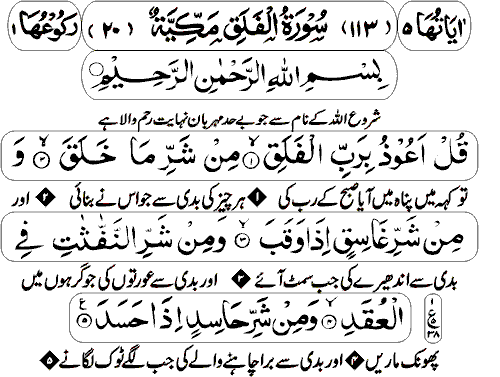 اٰیَاتُهَا ۵ (۱۱۳) سُوْرَةُ الْفَلَقِ مَكِّیَّةٌ (۲۰) رُكُوْعُهَا ۱
بِسْمِ اللهِ الرَّحْمٰنِ الرَّحِیْمِ
شروع اللہ کے نام سے جو بے حد مہربان نہایت رحم والا ہے
قُلْ اَعُوْذُ بِرَبِّ الْفَلَقِ ۱ مِنْ شَرِّ مَا خَلَقَ ۲ وَ
تو کہہ میں پناہ میں آیا صبح کے رب کی ۱ ہر چیز کی بدی سے جو اس نے بنائی ۲ اور
مِنْ شَرِّ غَاسِقٍ اِذَا وَقَبَ ۳ وَمِنْ شَرِّ النَّفّٰثٰتِ فِی
بدی سے اندھیرے کی جب سمٹ آئے ۳ اور بدی سے عورتوں کی جو گرہوں میں
الْعُقَدِ ۴ وَمِنْ شَرِّ حَاسِدٍ اِذَا حَسَدَ ۵
پھونک ماریں ۴ اور بدی سے برا چاہنے والے کی جب لگے ٹوک لگانے ۵